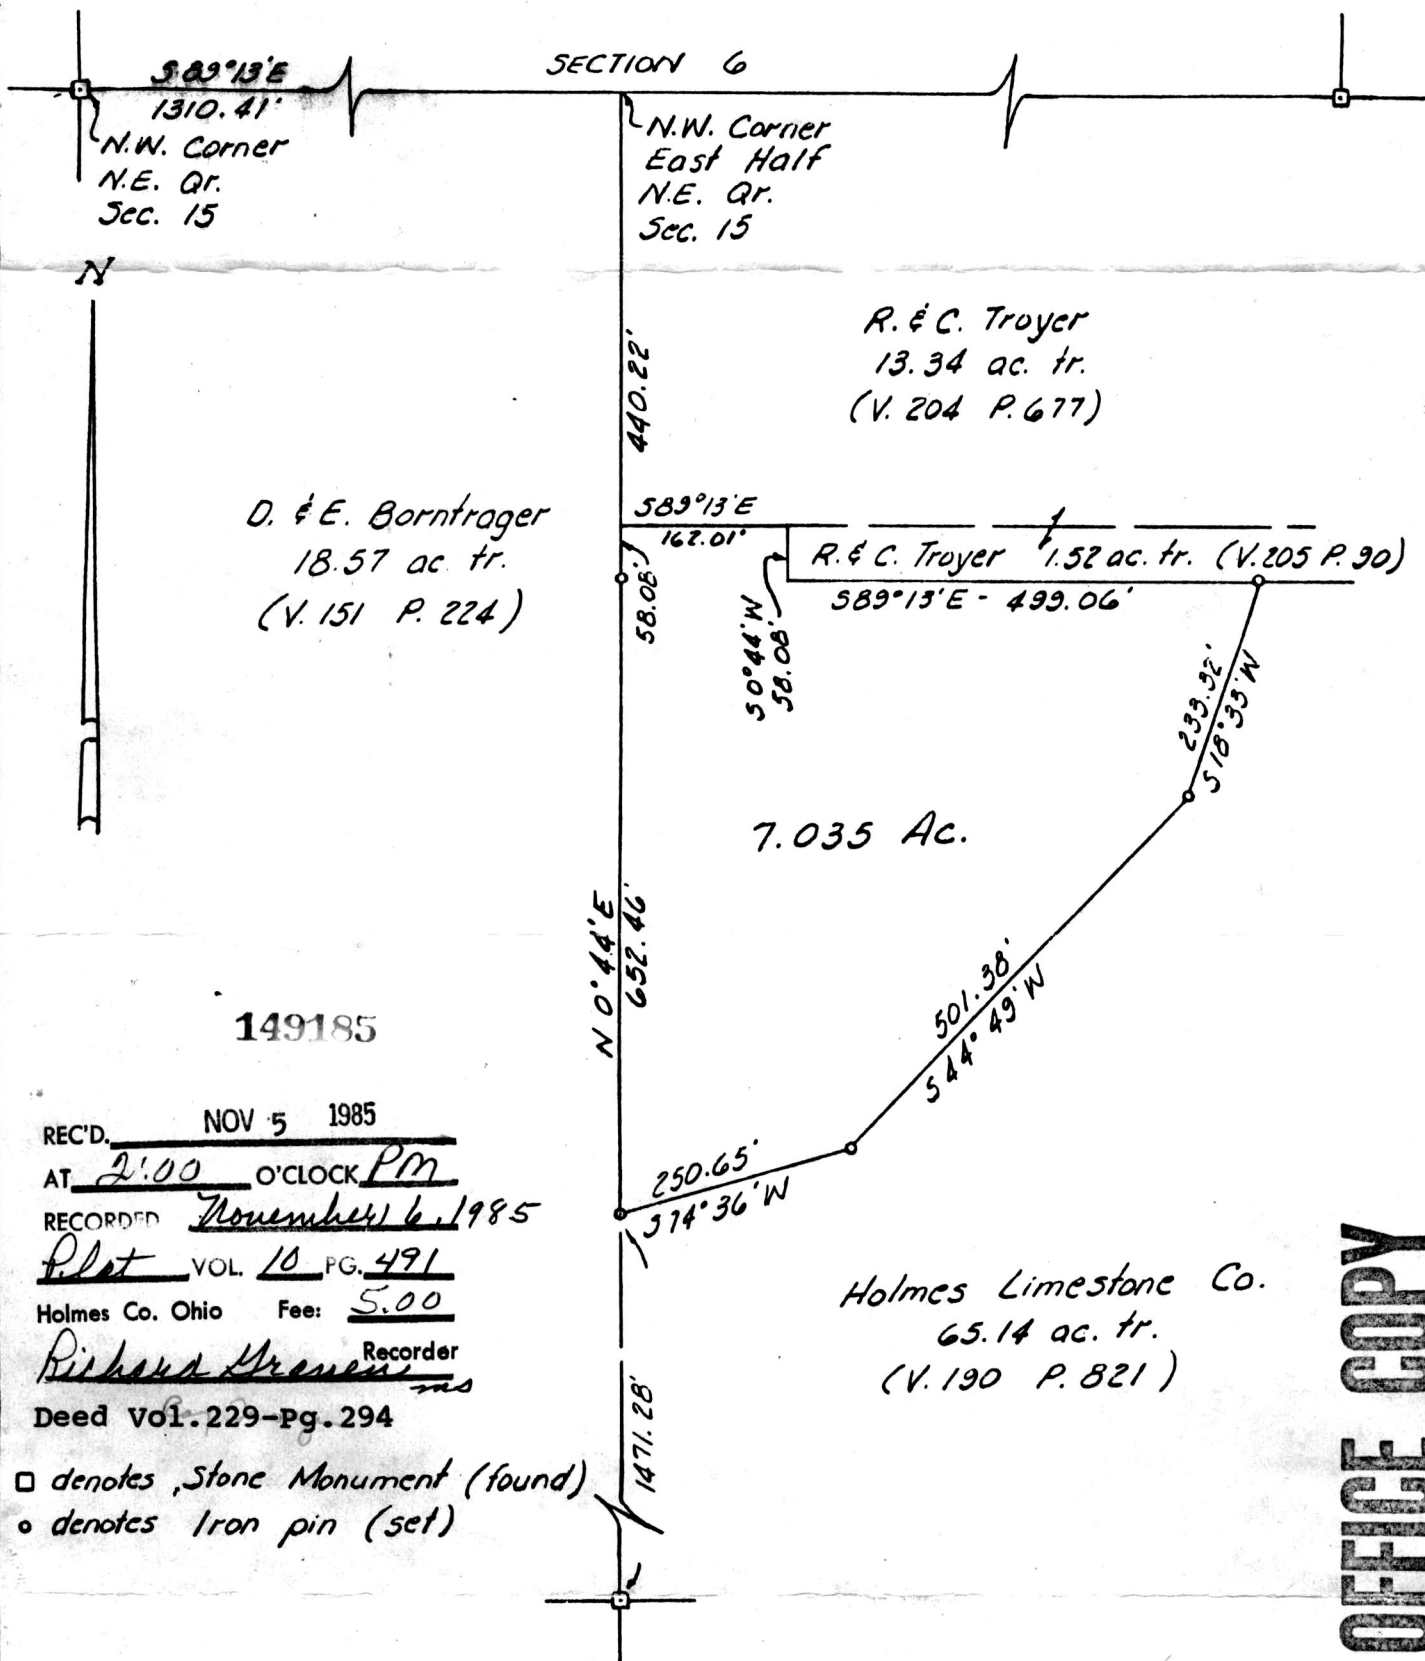 SECTION 6
S89°13'E
1310.41'
N.W. Corner
N.E. Qr.
Sec. 15
N.W. Corner
East Half
N.E. Qr.
Sec. 15
N
440.22'
R. & C. Troyer
13.34 ac. tr.
(V. 204 P. 677)
D. & E. Borntrager
18.57 ac. tr.
(V. 151 P. 224)
S89°13'E
162.01'
58.08'
S0°44'W
58.08'
R. & C. Troyer 1.52 ac. tr. (V. 205 P. 90)
S89°13'E - 499.06'
233.32'
S18°33'W
7.035 Ac.
N0°44'E
652.46'
501.38'
S44°49'W
250.65'
S74°36'W
149185
REC'D. NOV 5 1985
AT 2:00 O'CLOCK PM
RECORDED November 6, 1985
Plat VOL. 10 PG. 491
Holmes Co. Ohio Fee: 5.00
Richard Graven Recorder
ms
Deed Vol.229-Pg.294
Holmes Limestone Co.
65.14 ac. tr.
(V. 190 P. 821)
1471.28'
denotes Stone Monument (found)
denotes Iron pin (set)
OFFICE COPY